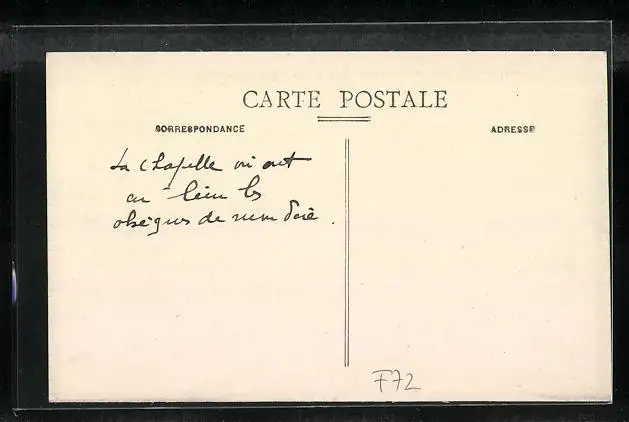 CARTE POSTALE
CORRESPONDANCE
ADRESSE
La chapelle où ont
eu lieu les
obsèques de
F72